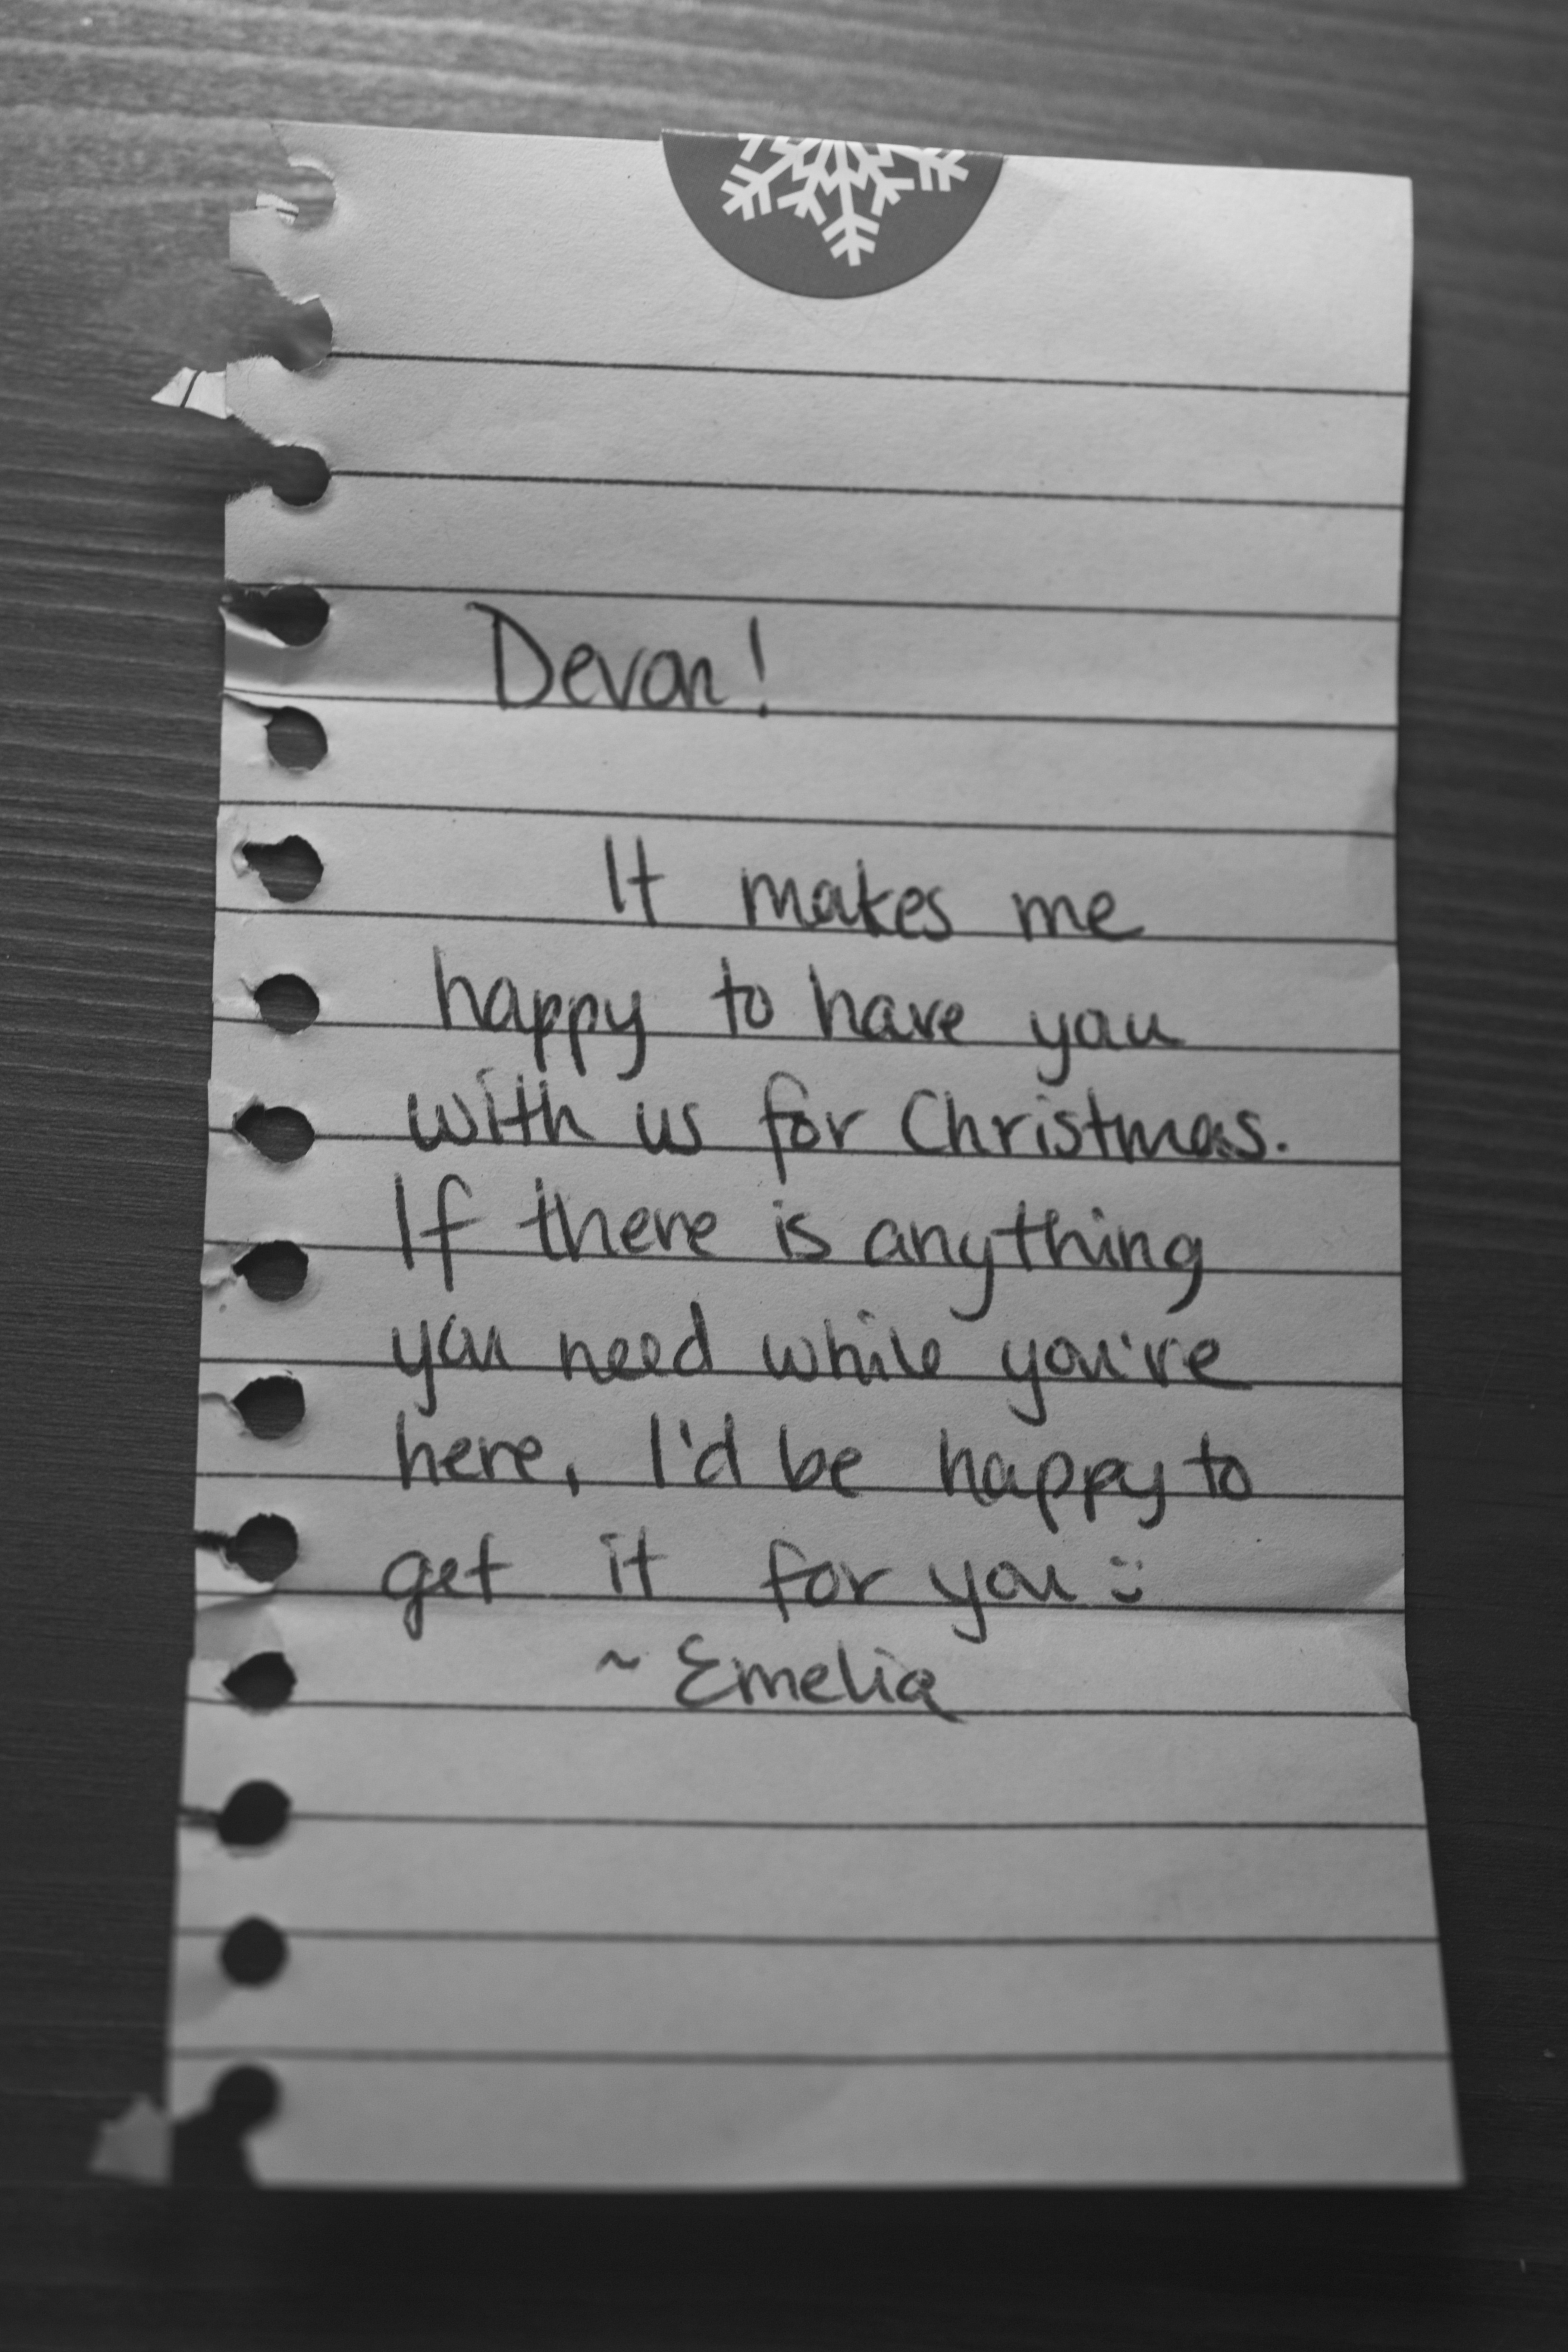 Devon!
It makes me
happy to have you
with us for Christmas.
If there is anything
you need while you're
here, I'd be happy to
get it for you :)
~ Emelia